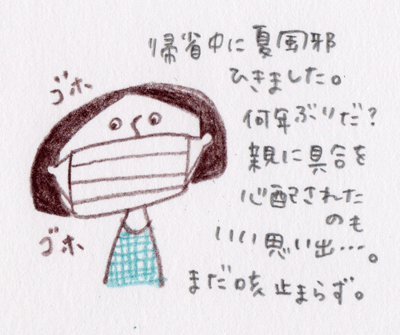 帰省中に夏風邪
ひきました。
何年ぶりだ?
親に具合を
心配された
のも
いい思い出…。
まだ咳止まらず。
ゴホ
ゴホ